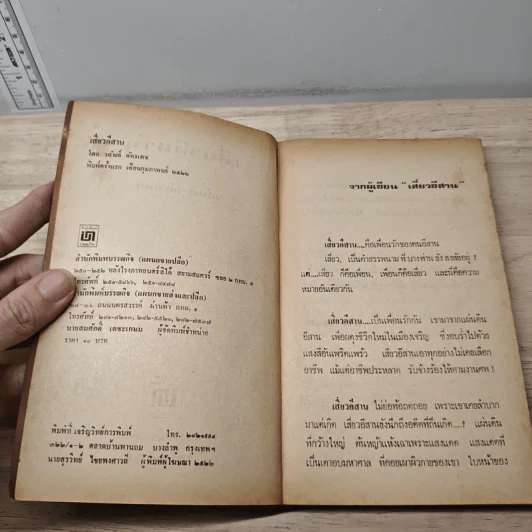 เสี่ยวอีสาน
โดย
พิมพ์ครั้งแรก เดือนกุมภาพันธ์ ๒๕๒๒
สำนักพิมพ์บรรณกิจ (แผนกขายปลีก)
๒๕๐-๒๕๒ หลังโรงภาพยนตร์ลิโด้ สยามสแควร์ ซอย ๒ กทม. ๑
โทรศัพท์
สำนักพิมพ์บรรณกิจ (แผนกขายส่งและปลีก)
ถนนนครสวรรค์ ผ่านฟ้า กทม. ๑
โทรศัพท์
นายสมศักดิ์ เตชะเกษม ผู้จัดพิมพ์จำหน่าย
ราคา ๑๐ บาท
พิมพ์ที่ เจริญวิทย์การพิมพ์ โทร.
๓๒๒/๑-๒ ตลาดบ้านพานถม บางลำพู กรุงเทพฯ
นายสุรวิทย์ ไชยพงศาวลี ผู้พิมพ์ผู้โฆษณา ๒๕๒๒
จากผู้เขียน "เสี่ยวอีสาน"
เสี่ยวอีสาน....คือเพื่อนรักของคนอีสาน
เสี่ยว, เป็นคำสรรพนาม ที่ บางท่าน ยัง สงสัยอยู่ !
แต่....เสี่ยว ก็คือเพื่อน, เพื่อนก็คือเสี่ยว และก็คือความ
หมายอันเดียวกัน
เสี่ยวอีสาน....เป็นเพื่อนรักกัน เขามาจากแผ่นดิน
อีสาน เพื่อผดุงชีวิตใหม่ในเมืองเจริญ ซึ่งอบร่ำไปด้วย
แสงสีอันเพริดแพร้ว เสี่ยวอีสานเอาทุกอย่างไม่เคยเลือก
อาชีพ แม้แต่อาชีพประหลาด รับจ้างร้องไห้ตามงานศพ !
เสี่ยวอีสาน ไม่ย่อท้อถดถอย เพราะเขาเคยลำบาก
มาแต่เกิด เสี่ยวอีสานยังนึกถึงอดีตที่ถิ่นเกิด....! แผ่นดิน
ที่กว้างใหญ่ ต้นหญ้าแห้งเฉาเพราะแสงแดด แสงแดดที่
เป็นเตาอบมหาศาล ที่คอยเผาผิวกายของเขา ใบหน้าของ